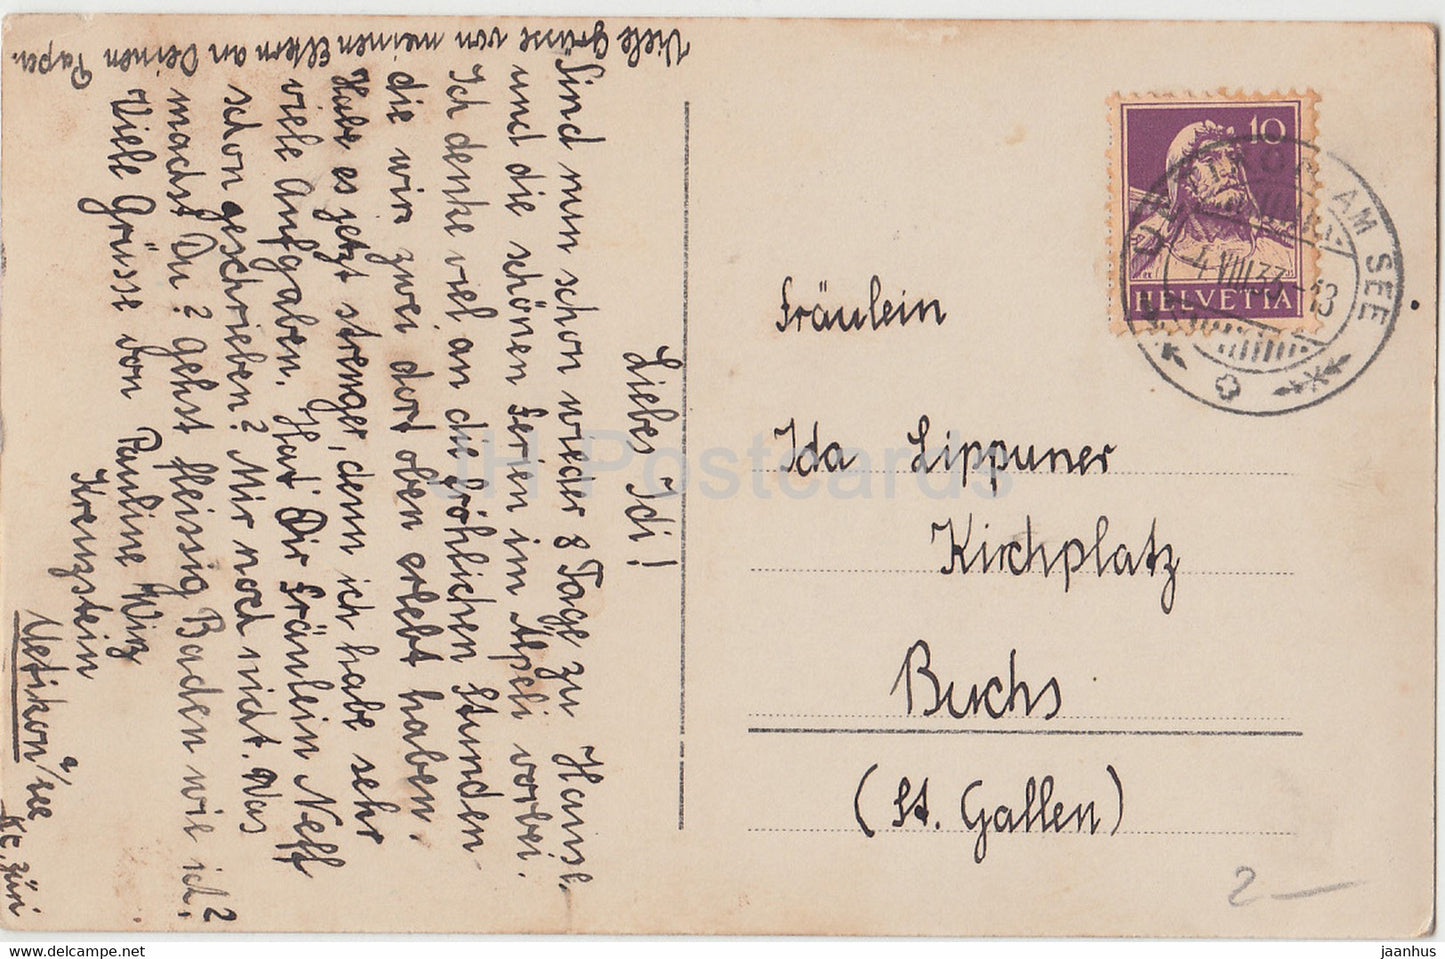 Liebes Idi!
Sind nun schon wieder 8 Tage zu Hause.
und die schönen Ferien im Alpeli vorbei.
Ich denke viel an die fröhlichen Stunden
die wir zwei dort oben erlebt haben.
Habe es jetzt strenger, denn ich habe sehr
viele Aufgaben. Hat Dir Fräulein Neff
schon geschrieben? Mir noch nicht. Was
machst Du? Gehst fleissig Baden wie ich?
Viele Grüsse von Pauline Wirz
Kreuzstein
Uetikon a/See
Kt. Züri
Viele Grüsse von meinen Eltern an Deinen Papa.
Fräulein
Ida Lippuner
Kirchplatz
Buchs
(St. Gallen)
10
HELVETIA
AM SEE
-4.VIII.33-13
2 —
JH Postcards
www.delcampe.net
jaanhus